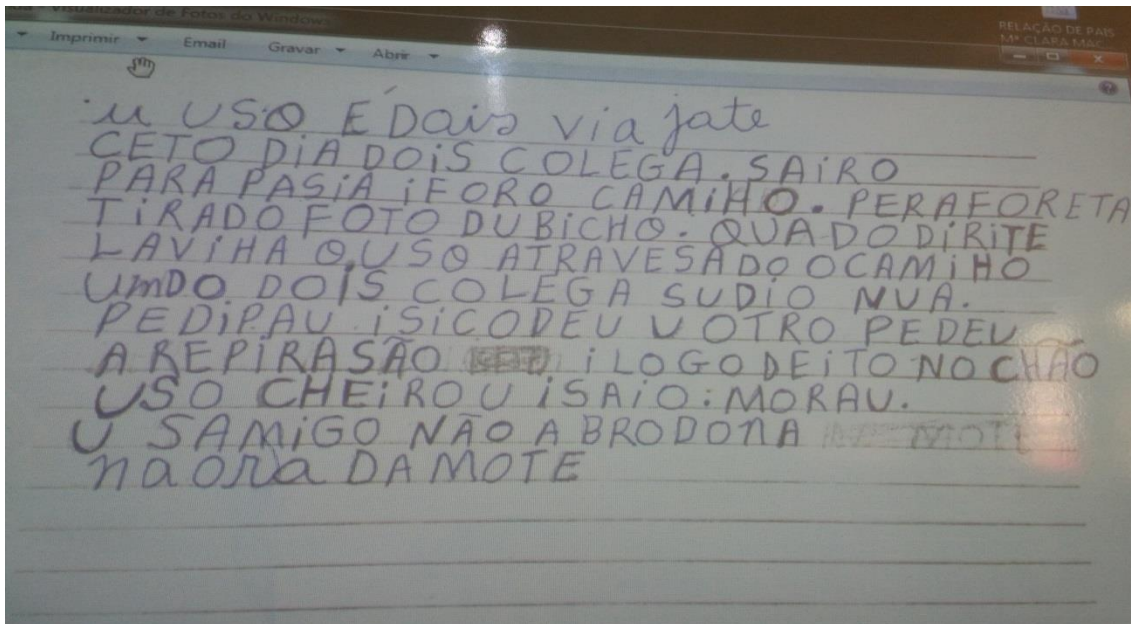 Visualizador de Fotos do Windows
RELAÇÃO DE PAIS
Mª CLARA MAC
Imprimir Email Gravar Abrir
u USO E Dois viajate
CETO DIA DOIS COLEGA. SAIRO
PARA PASIA iFORO CAMIHO. PERAFORETA
TIRADO FOTO DUBICHO. QUADO DIRITE
LAVIHA O USO ATRAVESADO OCAMIHO
UmDO DOIS COLEGA SUDIO NUA.
PEDIPAU iSICODEU U OTRO PEDEU
A REPIRASÃO i LOGO DEITO NO CHÃO
USO CHEIROU iSAIO: MORAU.
U SAMIGO NÃO ABRODONA
naora DAMOTE